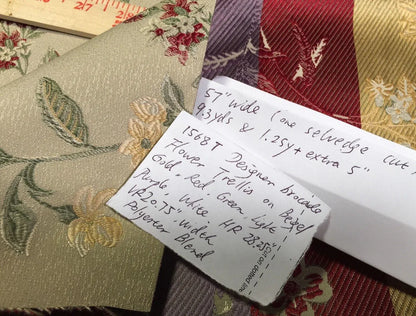 57" wide (one selvedge cut)
9.3yds & 1.25y + extra 5"
1568T Designer brocade
Flower Trellis on Beige/
Gold, Red, Green, Light
Purple, White HR 28.25"
VR20.75" Width
Polyester Blend